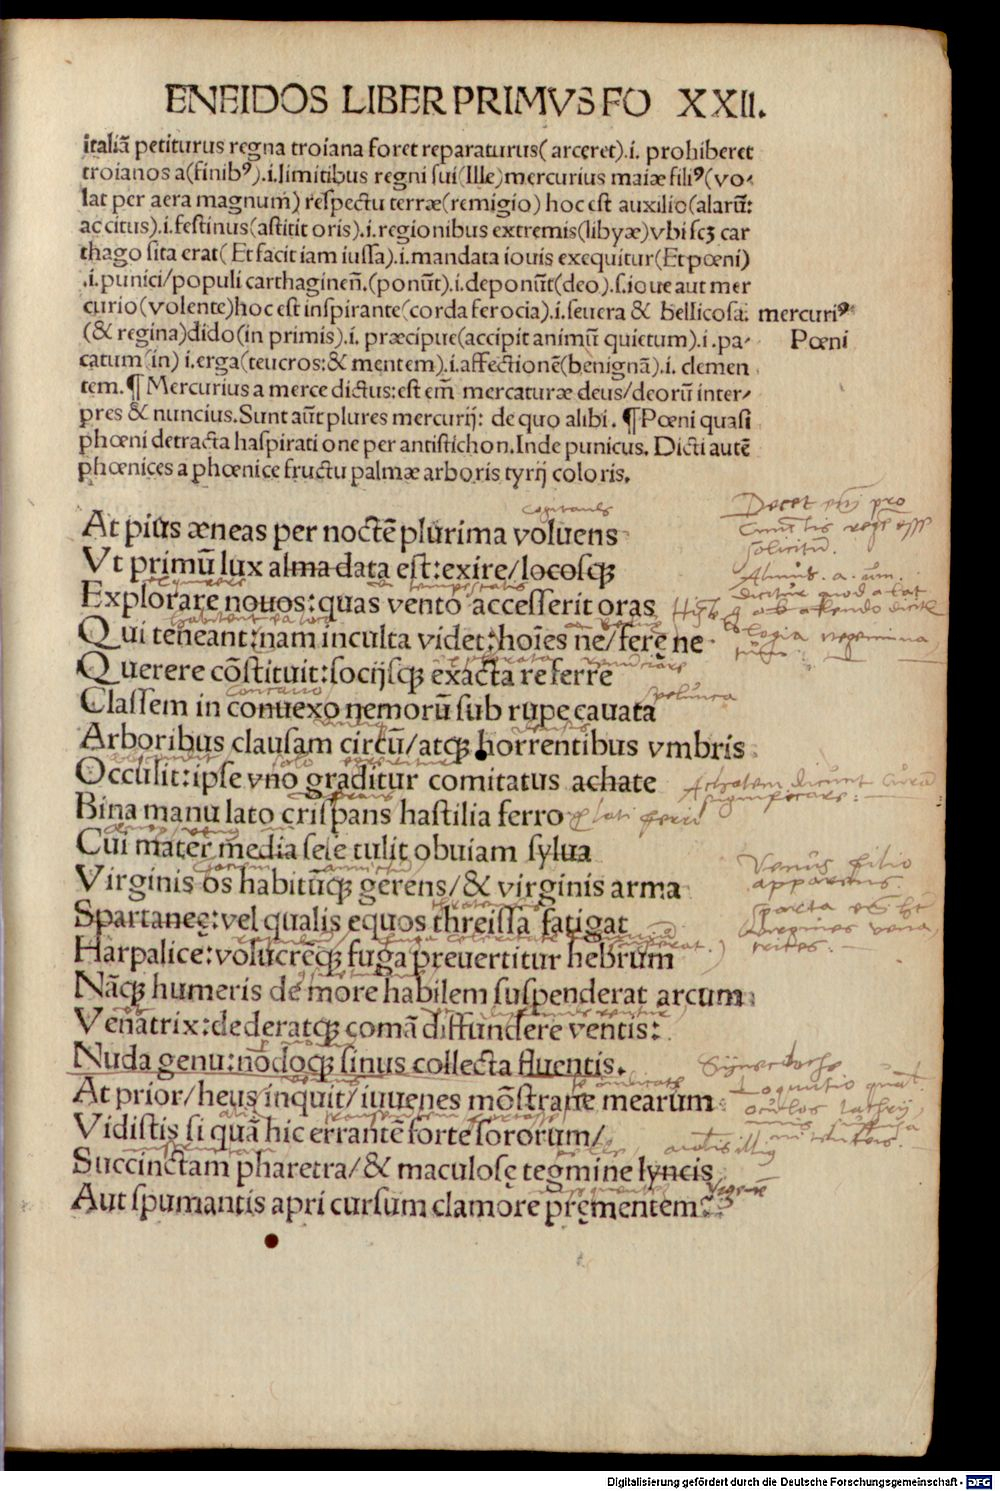 ENEIDOS LIBER PRIMVS FO XXII.
italiā petiturus regna troiana foret reparaturus( arceret).i. prohiberet
troianos a(finibꝰ).i.limitibus regni sui(Ille)mercurius maiæ filiꝰ(vo-
lat per aera magnum) respectu terræ(remigio) hoc est auxilio(alarū:
ac citus).i.festinus(astitit oris).i.regionibus extremis(libyæ)vbi scꝫ car
thago sita erat( Et facit iam iussa).i.mandata iouis exequitur(Et pœni)
.i.punici/populi carthaginen̄.(ponūt).i.deponūt(deo).s.ioue aut mer
curio(volente)hoc est inspirante(corda ferocia).i.seuera & bellicosa.
mercuriꝰ
(& regina)dido(in primis).i. præcipue(accipit animū quietum).i.pa-
Pœni
catum(in) i.erga(teucros:& mentem).i.affectionē(benignā).i. clemen
tem.¶ Mercurius a merce dictus:est em̄ mercaturæ deus/deorū inter-
pres & nuncius.Sunt aūt plures mercurij: de quo alibi. ¶Pœni quasi
phœni detracta haspiratione per antistichon.Inde punicus. Dicti autē
phœnices a phœnice fructu palmæ arboris tyrij coloris.
cogitans
At pius æneas per noctē plurima voluens
Decet pro
solicitū.
Vt primū lux alma data est:exire/locosqꝫ
Explorare nouos:quas vento accesserit oras
Qui teneant:nam inculta videt:hoīes ne/feręne
Querere cōstituit:socijsqꝫ exacta referre
Classem in conuexo nemorū sub rupe cauata
spelunca
Arboribus clausam circū/atqꝫ horrentibus vmbris
Occulit:ipse vno graditur comitatus achate
Achatem dicunt
Bina manu lato crispans hastilia ferro
lati ferri
Cui mater media sese tulit obuiam sylua
Venus filio
apparens.
Virginis os habitūqꝫ gerens/& virginis arma
Spartaneę:vel qualis equos threissa fatigat
Harpalice:volucrēqꝫ fuga preuertitur hebrum
Nāqꝫ humeris de more habilem suspenderat arcum
Venatrix:dederatqꝫ comā diffundere ventis:
Nuda genu:nōdoqꝫ sinus collecta fluentis.
Synecdoche
At prior/heus inquit/iuuenes mōstrate mearum
Vidistis si quā hic errantē forte sororum/
Succinctam pharetra/& maculosę tegmine lyncis
Aut spumantis apri cursum clamore pręmentem.
Digitalisierung gefördert durch die Deutsche Forschungsgemeinschaft - DFG